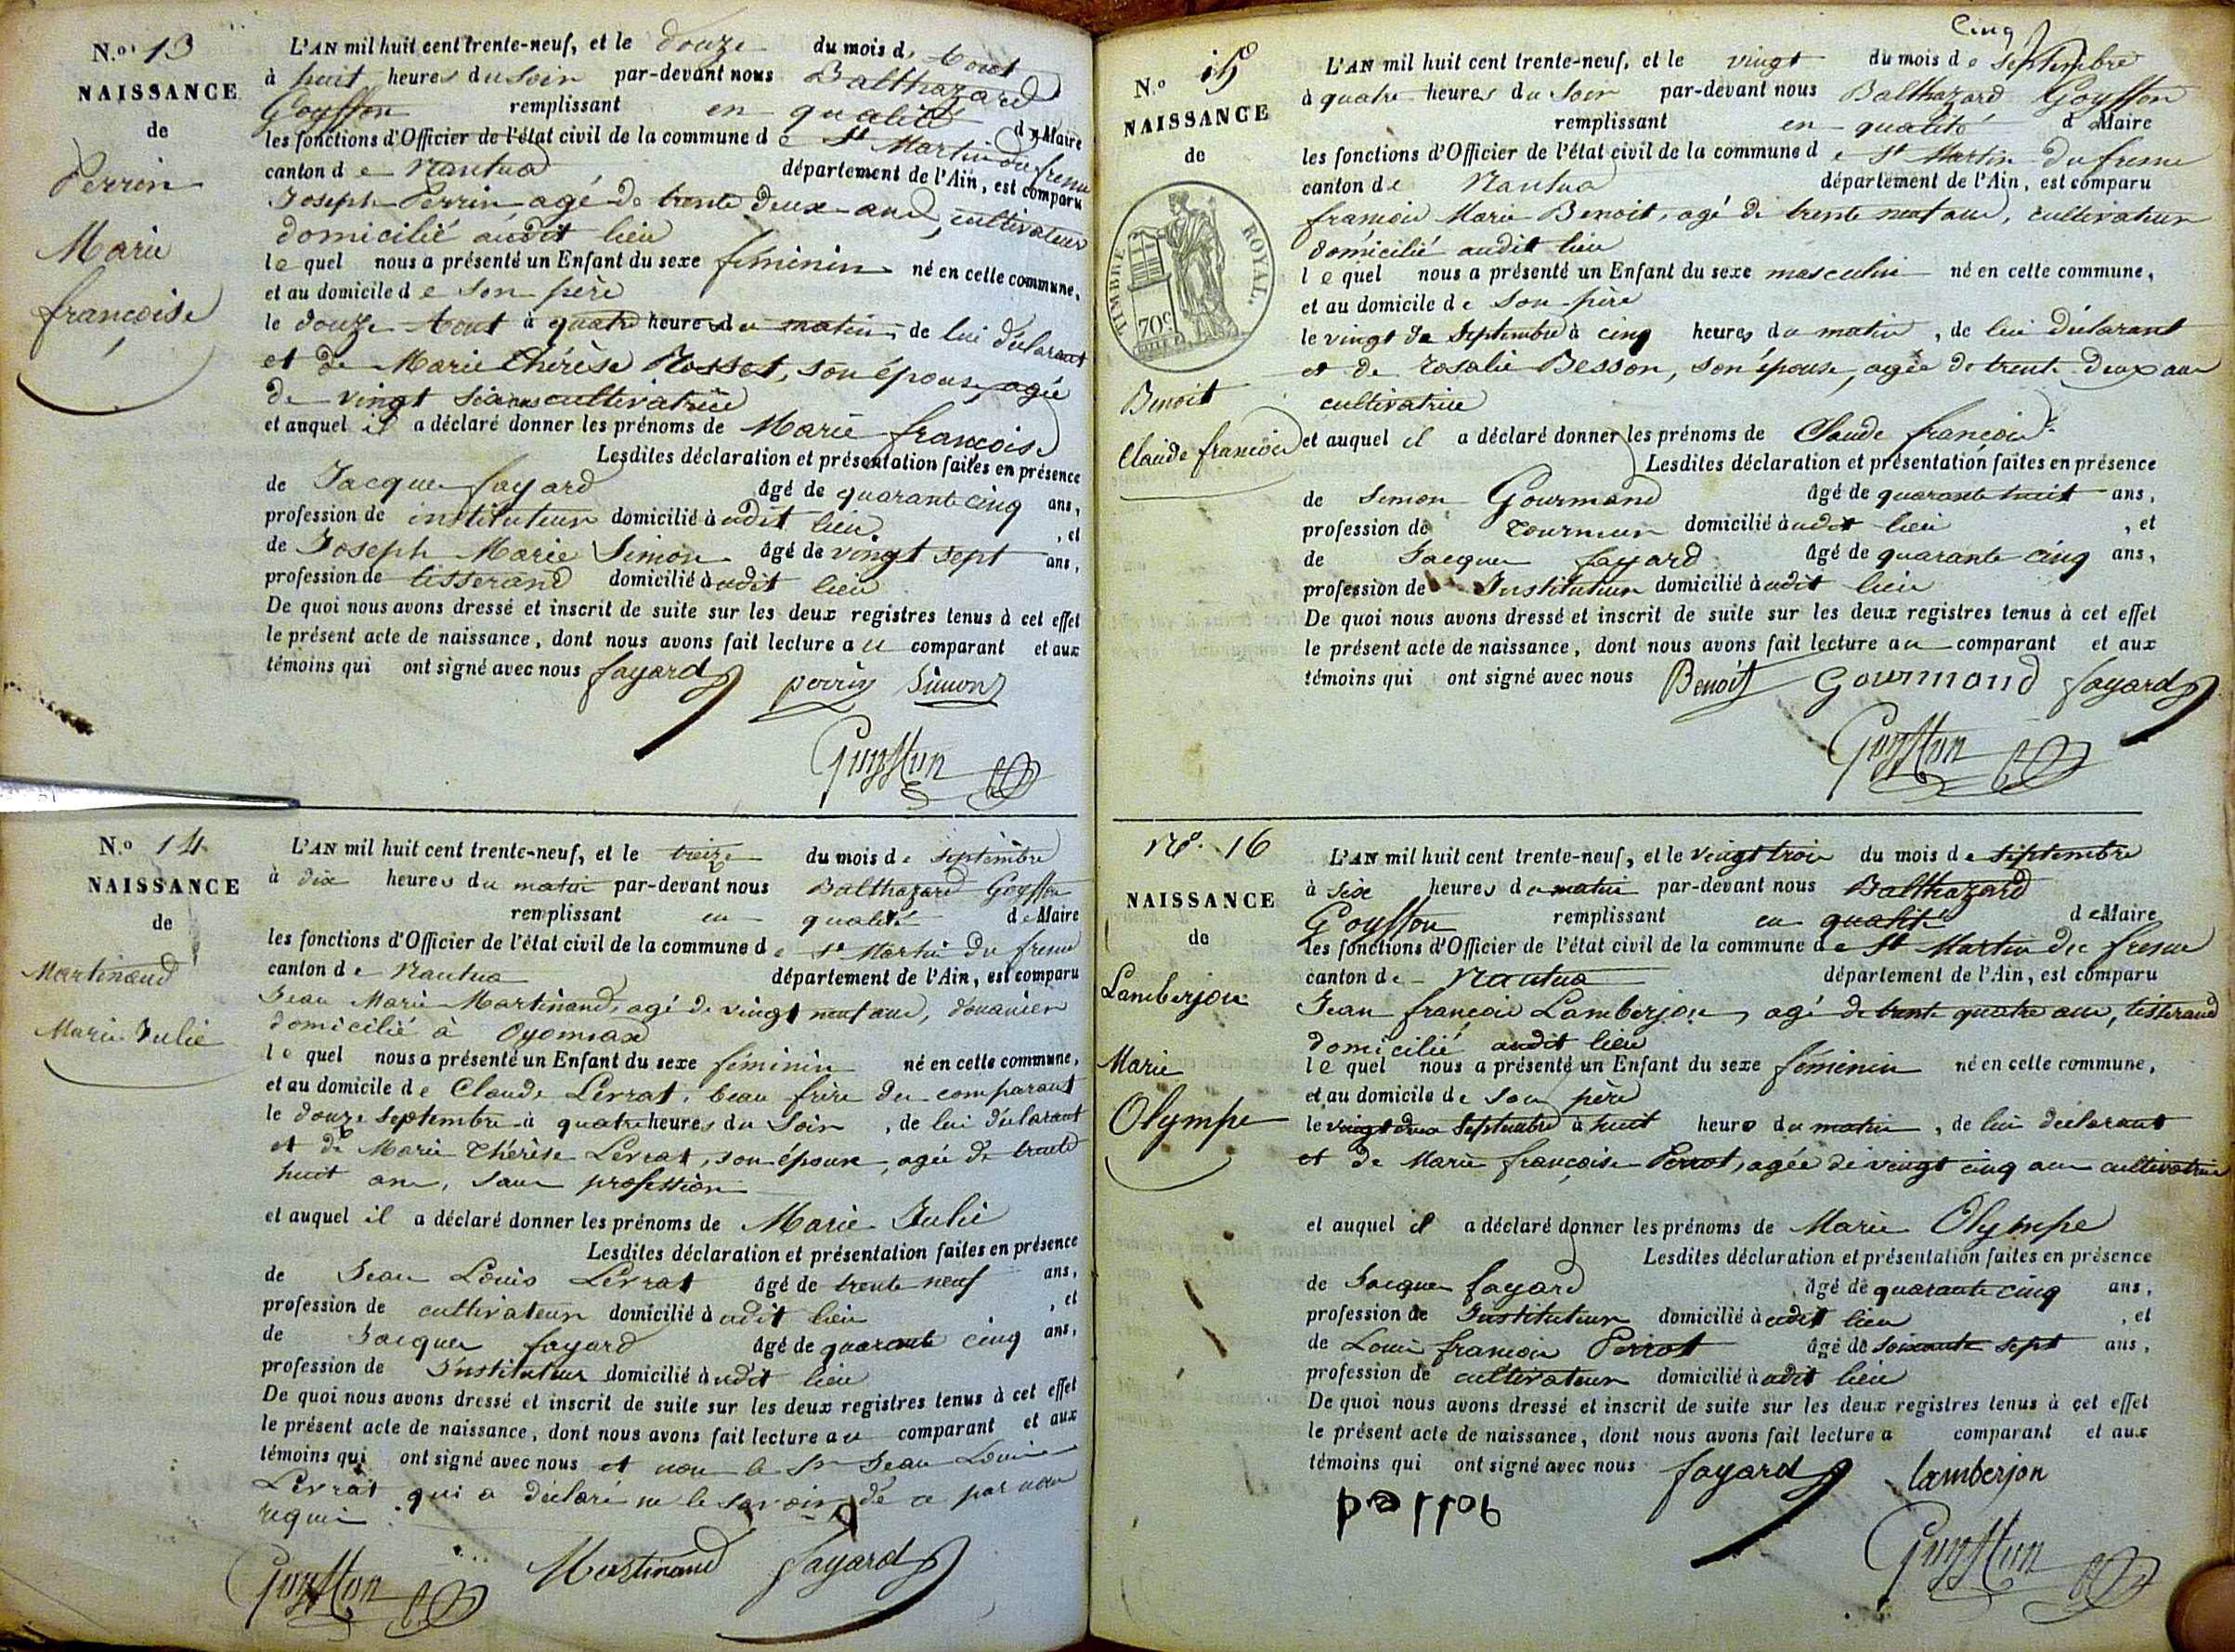 N.o 13
NAISSANCE
de
Perrin
Marie
françoise
L'AN mil huit cent trente-neuf, et le douze du mois d'Aout
à huit heures du soir par-devant nous Balthazard
Goyffon remplissant en qualité de Maire
les fonctions d'Officier de l'état civil de la commune de St Martin du fresne
canton de Nantua département de l'Ain, est comparu
Joseph Perrin agé de trente deux ans, cultivateur
domicilié audit lieu
lequel nous a présenté un Enfant du sexe féminin né en cette commune,
et au domicile de son père
le douze Aout à quatre heures du matin de lui déclarant
et de Marie Thérèse Rosset, son épouse, agée
de vingt six ans cultivatrice
et auquel il a déclaré donner les prénoms de Marie françoise
Lesdites déclaration et présentation faites en présence
de Jacques fayard âgé de quarante cinq ans,
profession de instituteur domicilié audit lieu, et
de Joseph Marie Simon âgé de vingt sept ans,
profession de tisserand domicilié audit lieu
De quoi nous avons dressé et inscrit de suite sur les deux registres tenus à cet effet
le présent acte de naissance, dont nous avons fait lecture au comparant et aux
témoins qui ont signé avec nous fayard perrin Simon
Goyffon
N.o 14
NAISSANCE
de
Martinand
Marie Julie
L'AN mil huit cent trente-neuf, et le treize du mois de septembre
à dix heures du matin par-devant nous Balthazard Goyffon
remplissant en qualité de Maire
les fonctions d'Officier de l'état civil de la commune de St Martin du fresne
canton de Nantua département de l'Ain, est comparu
Jean Marie Martinand, agé de vingt neuf ans, douanier
domicilié à Oyonnax
lequel nous a présenté un Enfant du sexe féminin né en cette commune,
et au domicile de Claude Levrat, beau frère du comparant
le douze septembre à quatre heures du soir, de lui déclarant
et de Marie Thérèse Levrat, son épouse, agée de trente
huit ans, sans profession
et auquel il a déclaré donner les prénoms de Marie Julie
Lesdites déclaration et présentation faites en présence
de Jean Louis Levrat âgé de trente neuf ans,
profession de cultivateur domicilié audit lieu, et
de Jacques fayard âgé de quarante cinq ans,
profession de Instituteur domicilié audit lieu
De quoi nous avons dressé et inscrit de suite sur les deux registres tenus à cet effet
le présent acte de naissance, dont nous avons fait lecture au comparant et aux
témoins qui ont signé avec nous et non le Sr Jean Louis
Levrat qui a déclaré ne le savoir de ce par nous
requis.
Goyffon Martinand fayard
Cinq
N.o 15
NAISSANCE
de
TIMBRE ROYAL.
70c
Benoit
Claude françois
L'AN mil huit cent trente-neuf, et le vingt du mois de Septembre
à quatre heures du Soir par-devant nous Balthazard Goyffon
remplissant en qualité de Maire
les fonctions d'Officier de l'état civil de la commune de St Martin du fresne
canton de Nantua département de l'Ain, est comparu
françois Marie Benoit, agé de trente neuf ans, cultivateur
domicilié audit lieu
lequel nous a présenté un Enfant du sexe masculin né en cette commune,
et au domicile de son père
le vingt de Septembre à cinq heures du matin, de lui déclarant
et de rosalie Besson, son épouse, agée de trente deux ans
cultivatrice
et auquel il a déclaré donner les prénoms de Claude françois
Lesdites déclaration et présentation faites en présence
de Simon Gourmand âgé de quarante huit ans,
profession de tourneur domicilié audit lieu, et
de Jacques fayard âgé de quarante cinq ans,
profession de Instituteur domicilié audit lieu
De quoi nous avons dressé et inscrit de suite sur les deux registres tenus à cet effet
le présent acte de naissance, dont nous avons fait lecture au comparant et aux
témoins qui ont signé avec nous Benoit Gourmand fayard
Goyffon
No. 16
NAISSANCE
de
Lamberjon
Marie
Olympe
L'AN mil huit cent trente-neuf, et le vingt trois du mois de septembre
à six heures du matin par-devant nous Balthazard
Goyffon remplissant en qualité de Maire
les fonctions d'Officier de l'état civil de la commune de St Martin du fresne
canton de Nantua département de l'Ain, est comparu
Jean françois Lamberjon, agé de trente quatre ans, tisserand
domicilié audit lieu
lequel nous a présenté un Enfant du sexe féminin né en cette commune,
et au domicile de son père
le vingt deux Septembre à huit heures du matin, de lui déclarant
et de Marie françoise Perrot, agée de vingt cinq ans cultivatrice
et auquel il a déclaré donner les prénoms de Marie Olympe
Lesdites déclaration et présentation faites en présence
de Jacques fayard âgé de quarante cinq ans,
profession de Instituteur domicilié audit lieu, et
de Louis françois Perrot âgé de soixante sept ans,
profession de cultivateur domicilié audit lieu
De quoi nous avons dressé et inscrit de suite sur les deux registres tenus à cet effet
le présent acte de naissance, dont nous avons fait lecture a comparant et aux
témoins qui ont signé avec nous fayard lamberjon
Goyffon